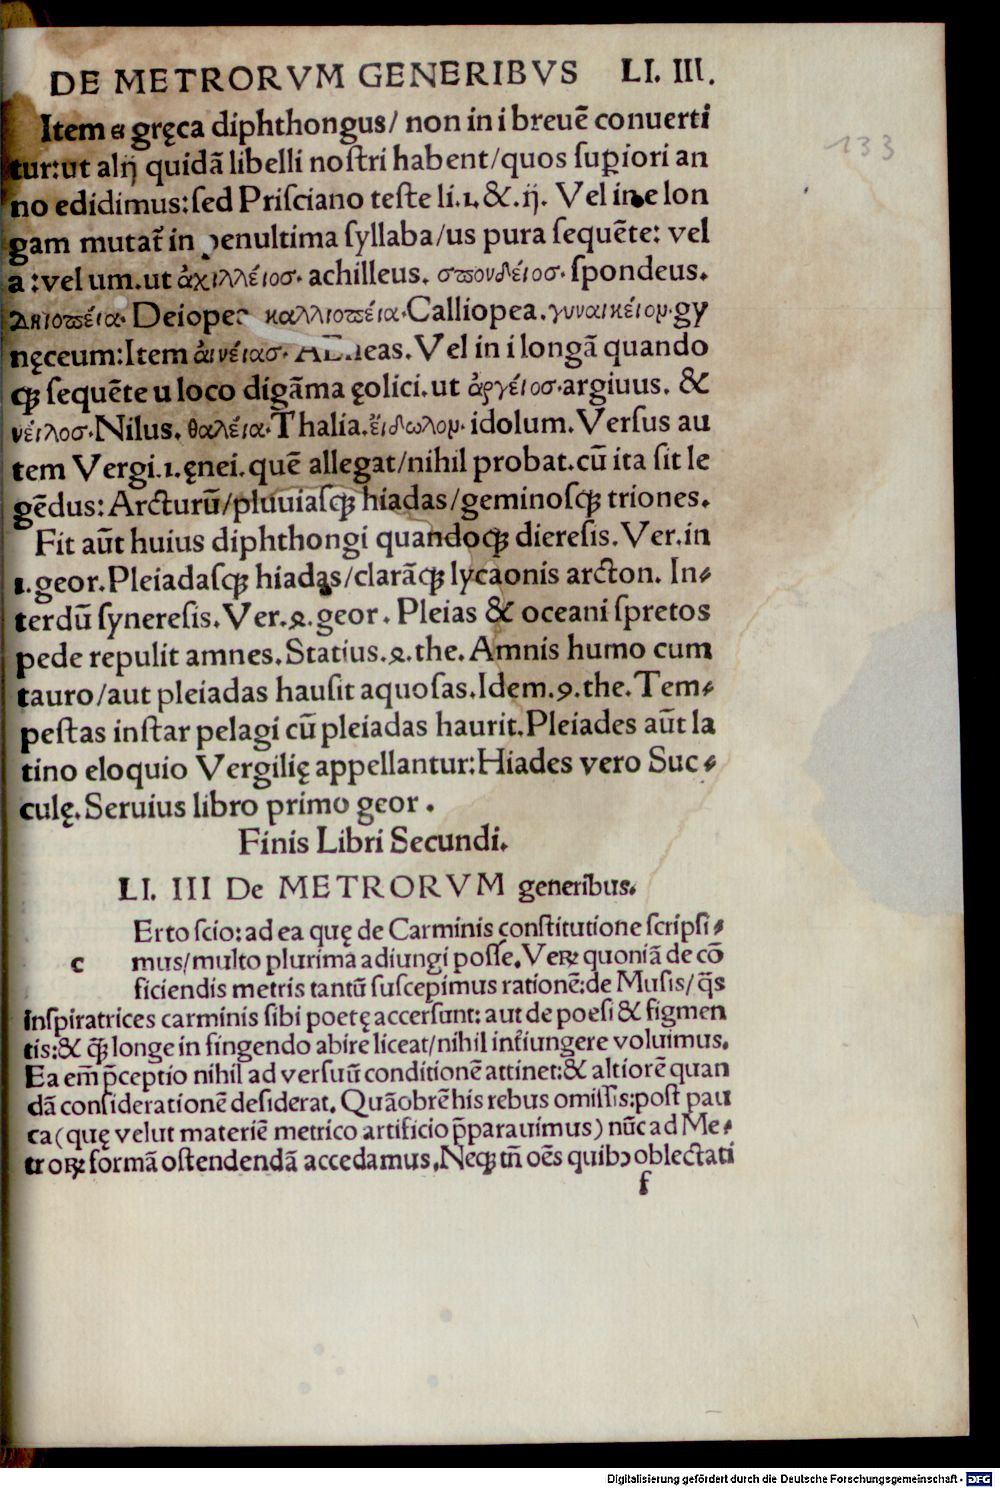 DE METRORVM GENERIBVS LI. III.
133
Item ει gręca diphthongus/ non in i breuē conuerti
tur:ut alij quidā libelli nostri habent/quos supiori an
no edidimus:sed Prisciano teste li.1.&.ij. Vel in e lon
gam mutat̄ in penultima syllaba/us pura sequēte: vel
a:vel um.ut ἀχιλλέιοσ. achilleus. σπουδέιοσ. spondeus.
Δηιοπέια. Deiopea καλλιοπέια. Calliopea. γυναικέιον. gy
nęceum:Item ἀινέιασ. AEneas. Vel in i longā quando
q; sequēte u loco digāma ęolici.ut ἀργέιοσ.argiuus. &
νέιλοσ.Nilus. θαλέια.Thalia.ἔιδωλον. idolum. Versus au
tem Vergi.1.ęnei.quē allegat/nihil probat.cū ita sit le
gēdus: Arcturū/pluuiasq; hiadas/geminosq; triones.
Fit aūt huius diphthongi quandoq; dieresis. Ver.in
1.geor.Pleiadasq; hiadas/clarāq; lycaonis arcton. In⸗
terdū syneresis. Ver.4.geor. Pleias & oceani spretos
pede repulit amnes. Statius.4.the. Amnis humo cum
tauro/aut pleiadas hausit aquosas.Idem.9.the. Tem⸗
pestas instar pelagi cū pleiadas haurit.Pleiades aūt la
tino eloquio Vergilię appellantur:Hiades vero Suc⸗
culę. Seruius libro primo geor.
Finis Libri Secundi.
LI. III De METRORVM generibus.
Erto scio: ad ea quę de Carminis constitutione scripsi⸗
c mus/multo plurima adiungi posse. Veꝝ quoniā de cō
ficiendis metris tantū suscepimus rationē:de Musis/ q̄s
inspiratrices carminis sibi poetę accersunt: aut de poesi & figmen
tis:& q̄; longe in fingendo abire liceat/nihil int̄iungere voluimus.
Ea em̄ p̄ceptio nihil ad versuū conditionē attinet:& altiorē quan
dā considerationē desiderat. Quāobrē his rebus omissis:post pau
ca(quę velut materiē metrico artificio p̄parauimus) nūc ad Me⸗
troꝝ formā ostendendā accedamus. Neq; tn̄ oēs quibꝰ oblectati
f
Digitalisierung gefördert durch die Deutsche Forschungsgemeinschaft - DFG